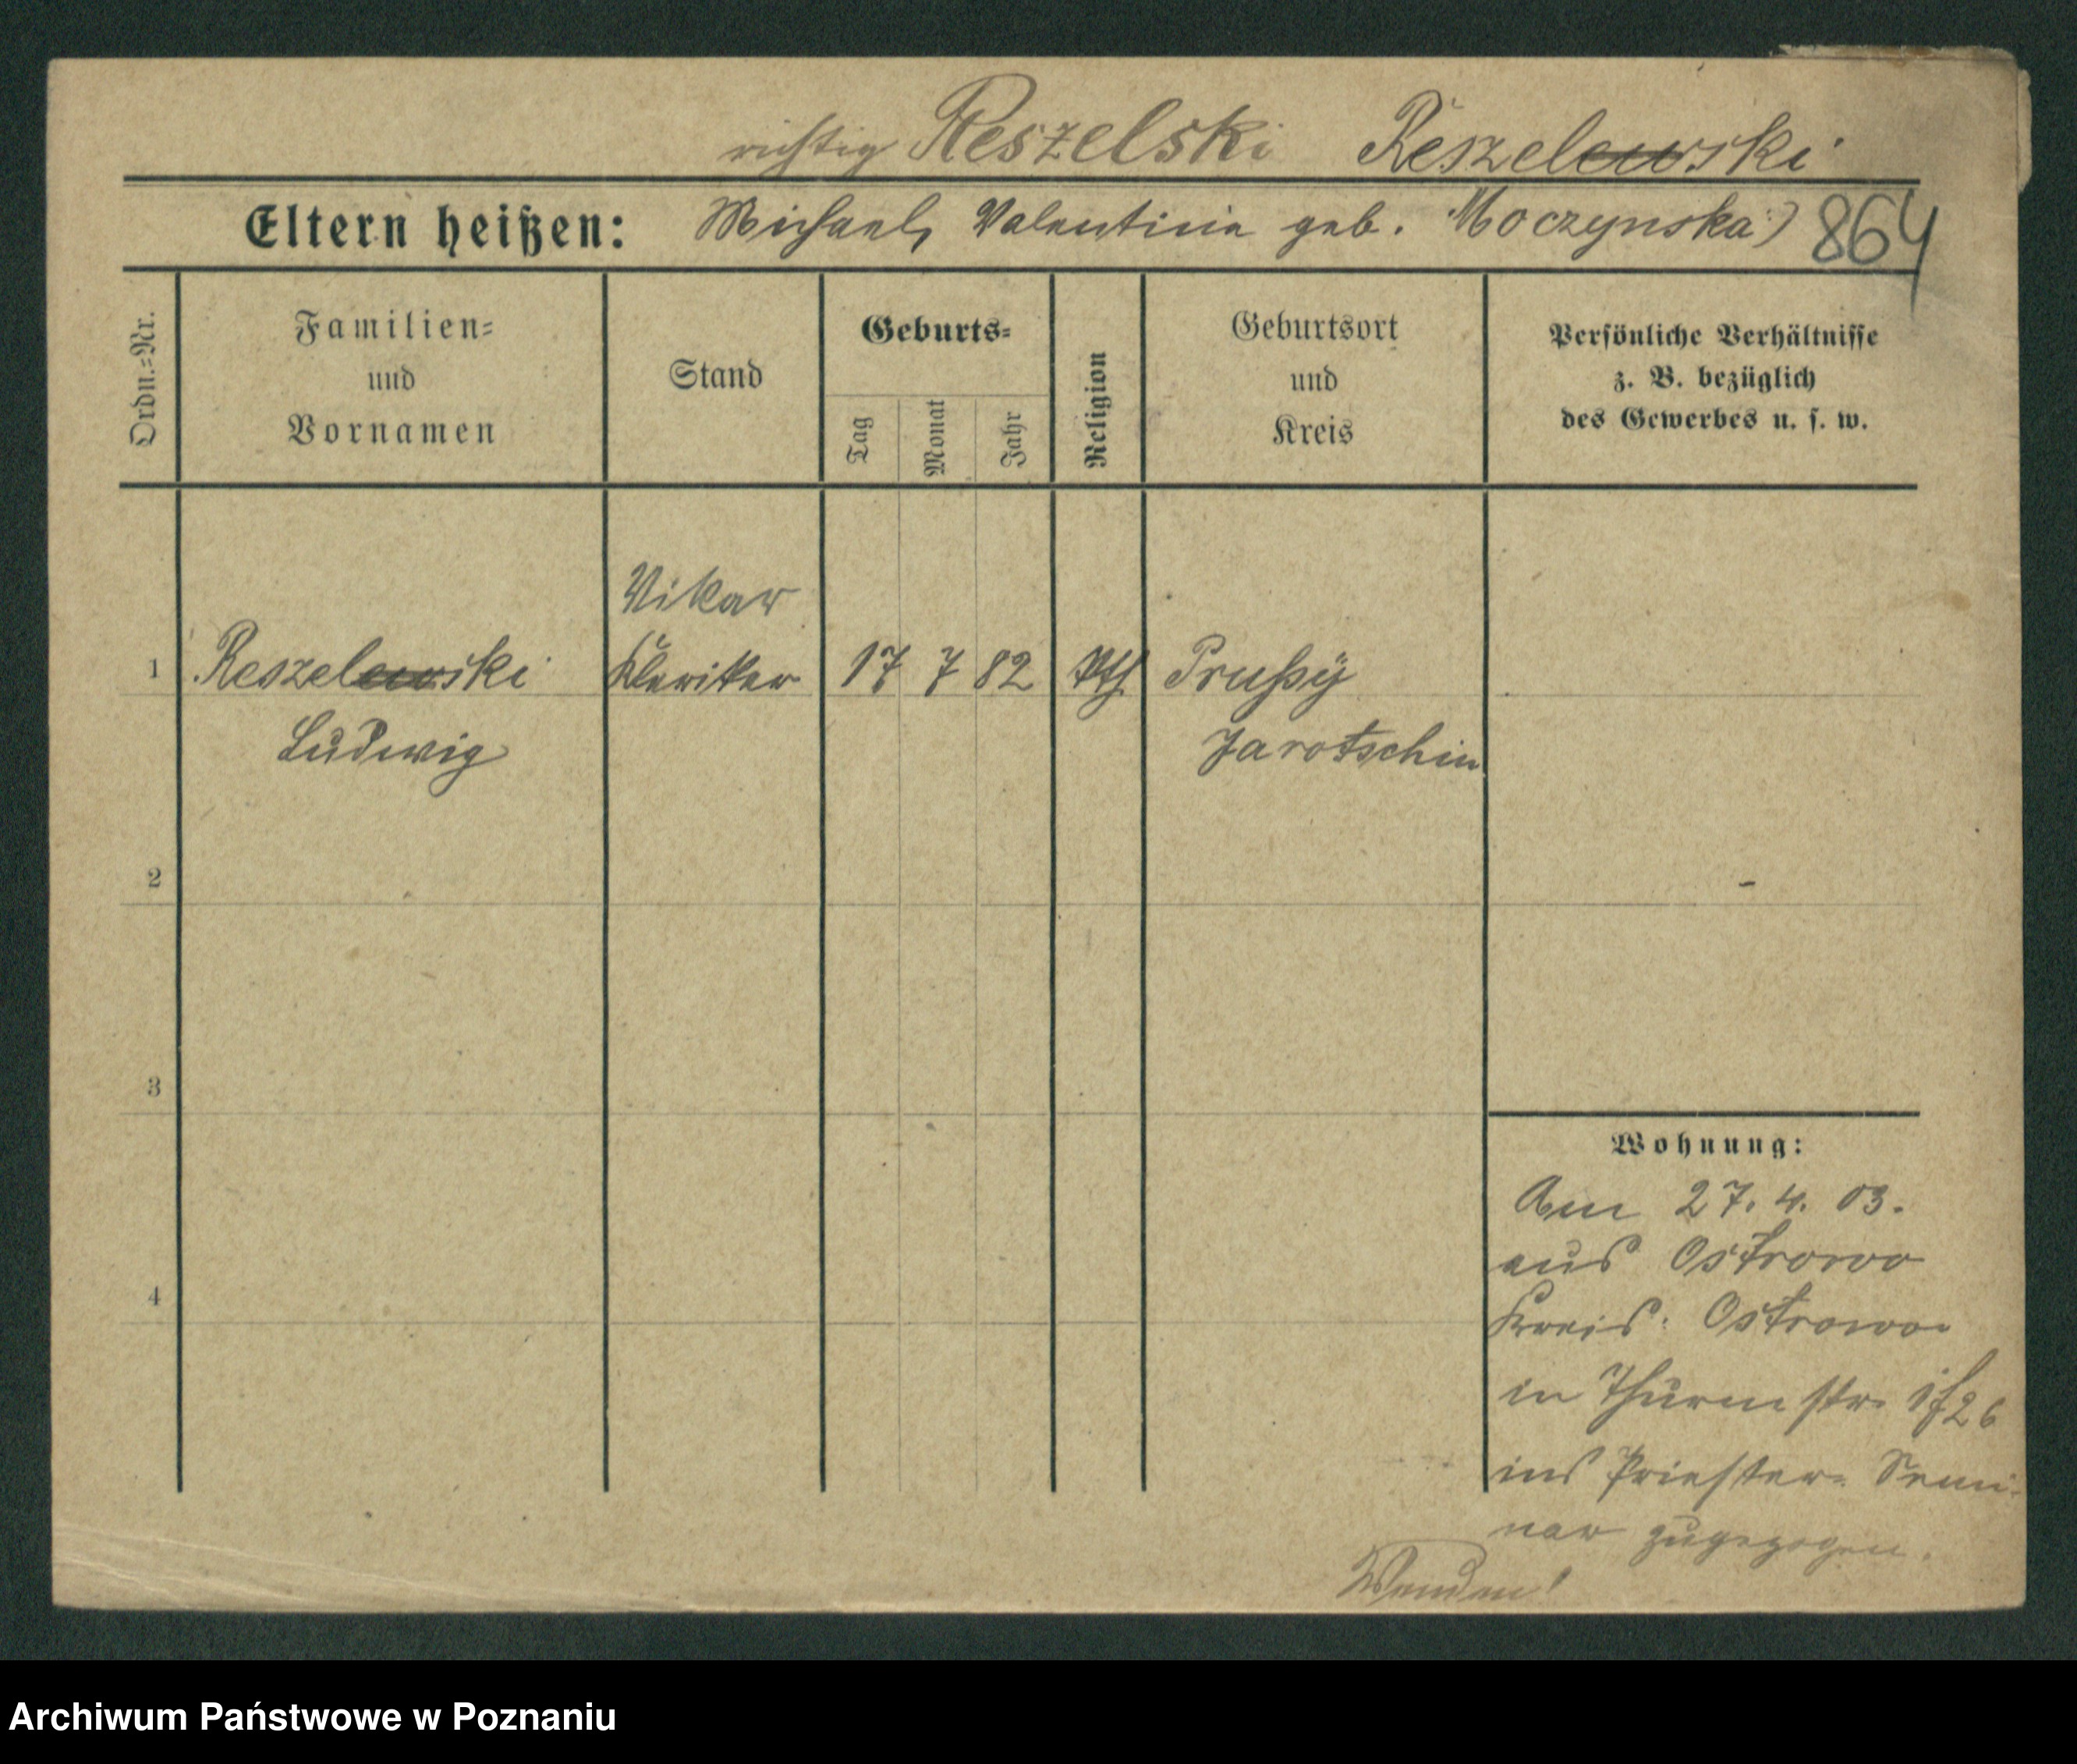 richtig Reszelski Reszelewski
Eltern heißen: Michael, Valentina geb. Moczynska) 864
Ordn.=Nr.
Familien=
und
Vornamen
Stand
Geburts=
Tag
Monat
Jahr
Religion
Geburtsort
und
Kreis
Persönliche Verhältnisse
z. B. bezüglich
des Gewerbes u. s. w.
Vikar
1 Reszelewski Kleriker 17 7 82 kth Prußy
Ludwig Jarotschin
2
3
4
Wohnung:
Am 27. 4. 03.
aus Ostrowo
Kreis: Ostrowo
in Thurmstr.
ins Priester= Semi-
nar zugezogen.
Wenden!
Archiwum Państwowe w Poznaniu